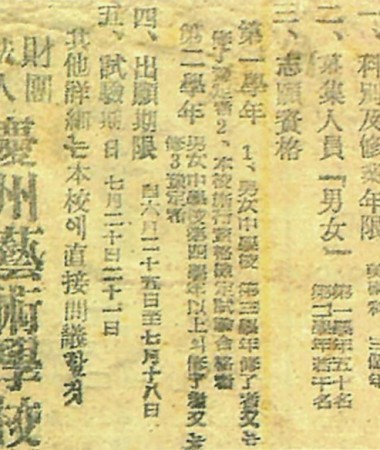 一、科別及修業年限 三個年
二、募集人員「男女」 第一學年五十名
第二學年若干名
三、志願資格
第一學年 1、男女中學校 第三學年修了者又는
修了豫定者2、本校施行資格檢定試驗合格者
第二學年 男女中學校第四學年以上의修了者又는
修3豫定者
四、出願期限 自六月二十五日至七月十八日
五、試驗期日 七月二十日二十一日
其他詳細는本校에直接問議할것
財團
法人 慶州藝術學校